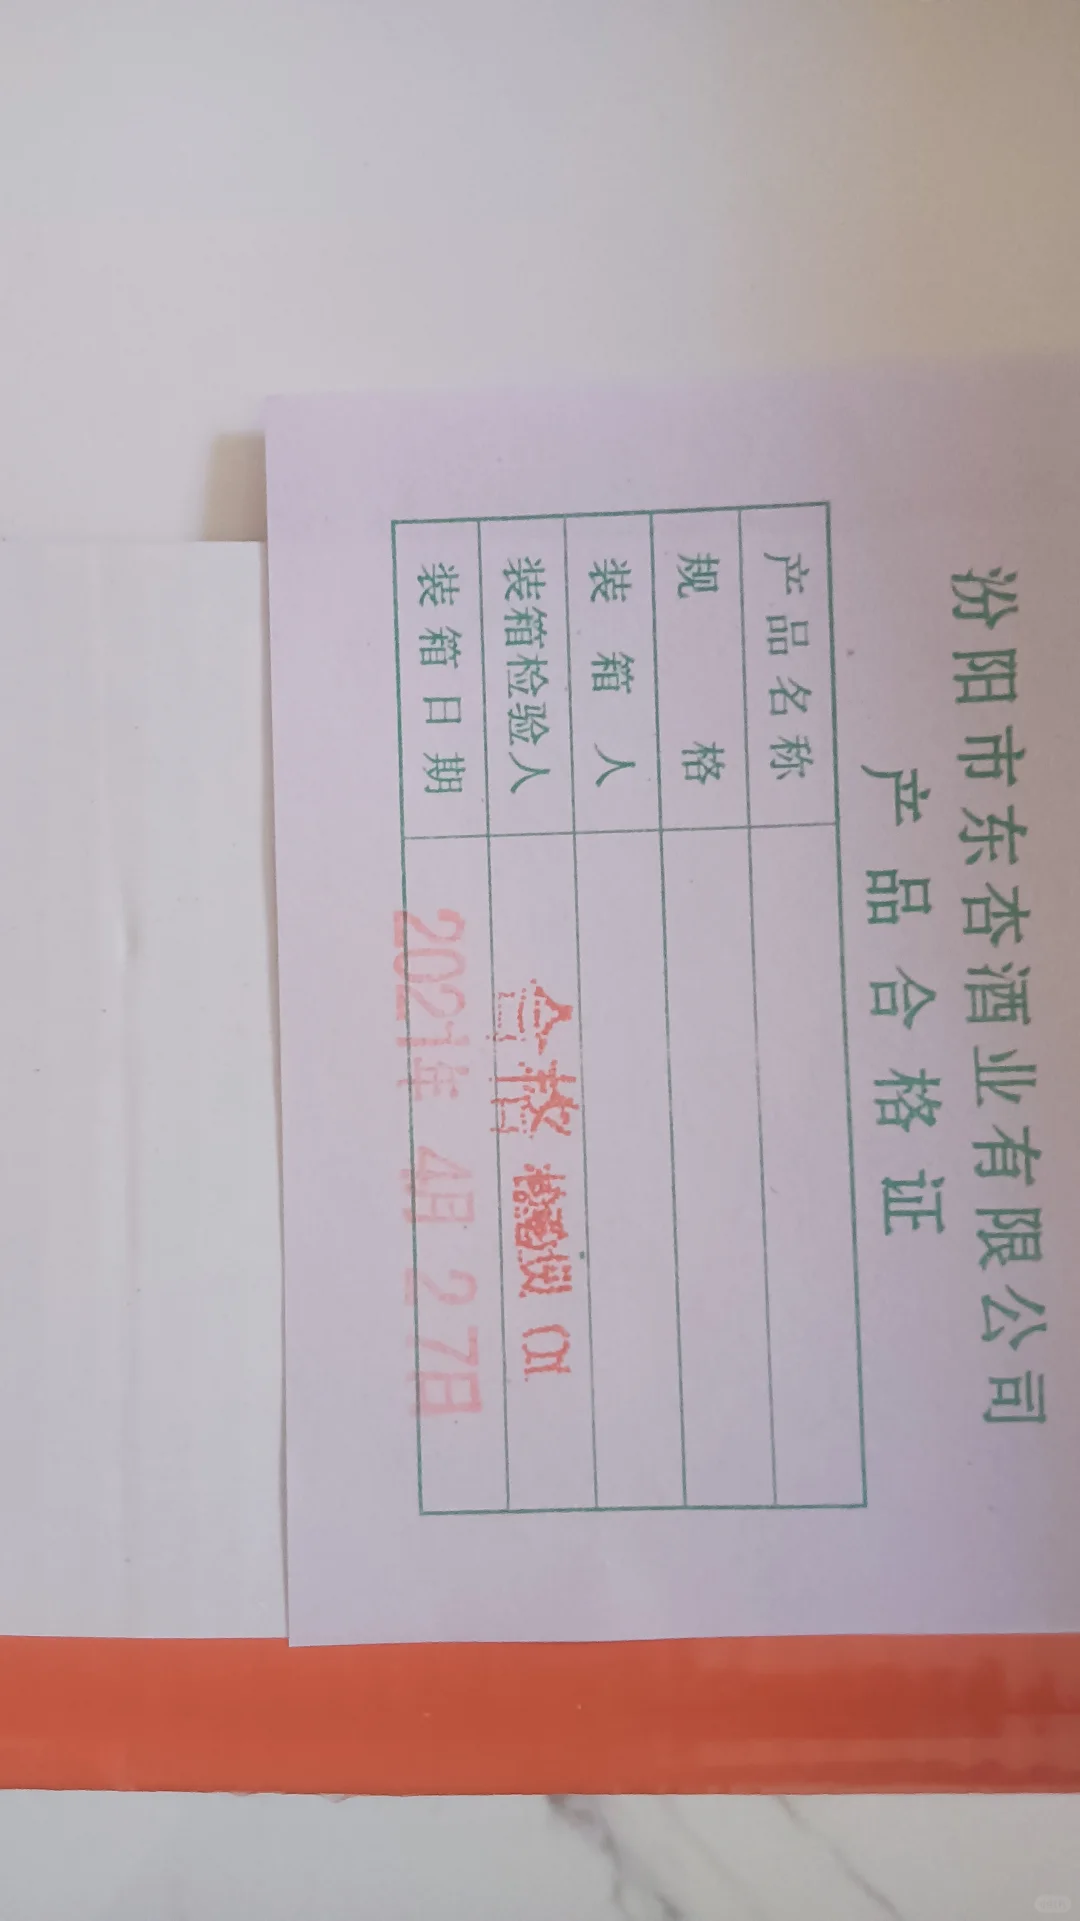 汾阳市东杏酒业有限公司
产品合格证
产品名称
规格
装箱人
装箱检验人 合格
装箱日期 2021年 4月27日